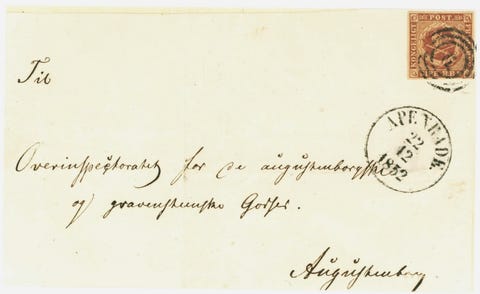 KONGELIGT POST
Til
APENRADE
22
12
1852
Overinspectoratet for de augustenborgske
og gravensteenske Godser.
Augustenborg